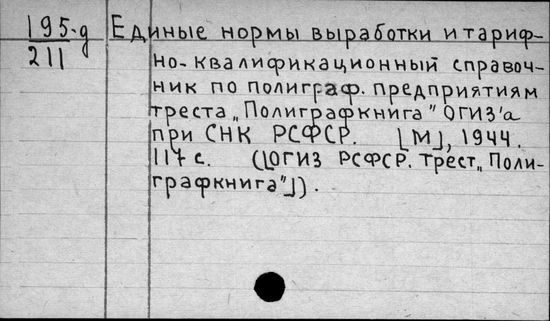 195-д
211
Единые нормы выработки и тариф-
но-квалификационный справоч-
ник по полиграф. предприятиям
треста „Полиграфкнига" ОГИЗ'а
при СНК РСФСР. [М], 1944.
117 с. ([ОГИЗ РСФСР. Трест „Поли-
графкнига"]).